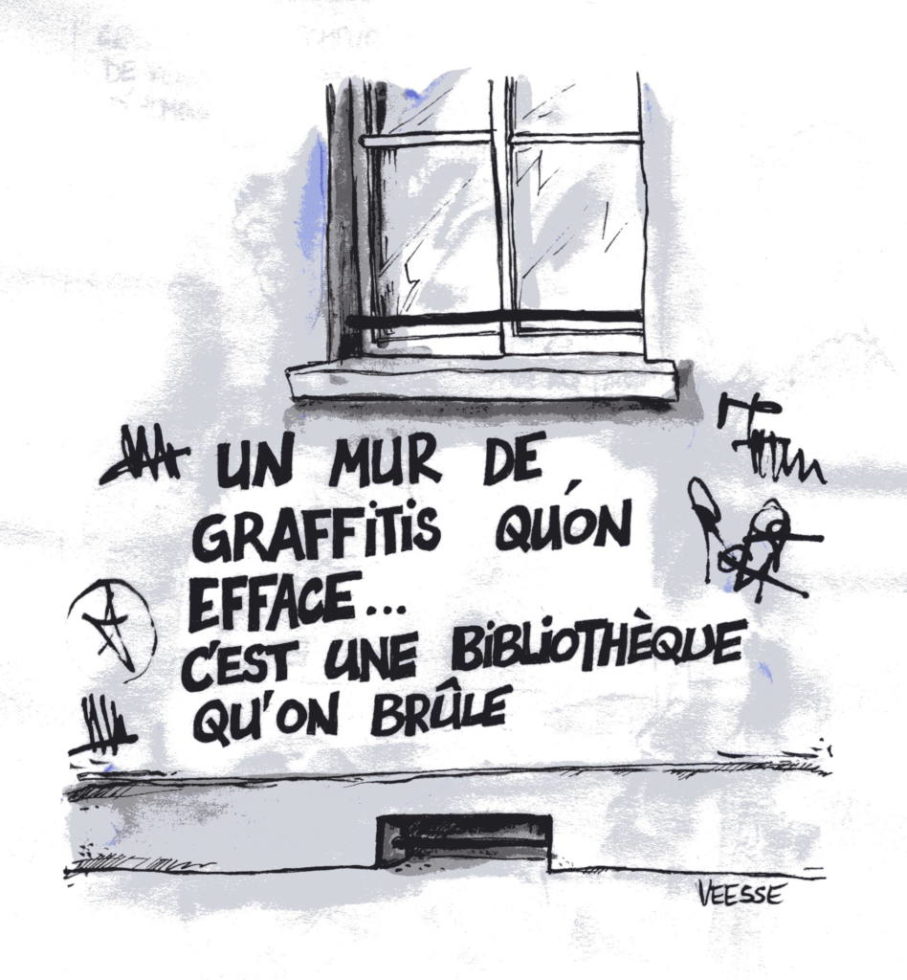 UN MUR DE
GRAFFiTiS QU'ON
EFFACE...
C'EST UNE BiBLiOTHÈQUE
QU'ON BRÛLE
VEESSE